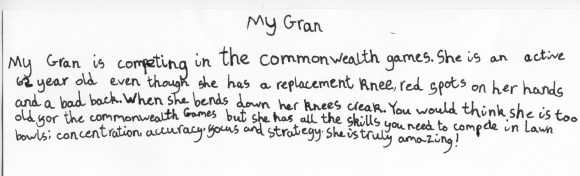 My Gran
My Gran is competing in the commonwealth games. She is an active
62 year old even though she has a replacement knee, red spots on her hands
and a bad back. When she bends down her knees creak. You would think she is too
old for the commonwealth Games but she has all the skills you need to compete in Lawn
bowls: concentration, accuracy, focus and strategy. She is truly amazing!